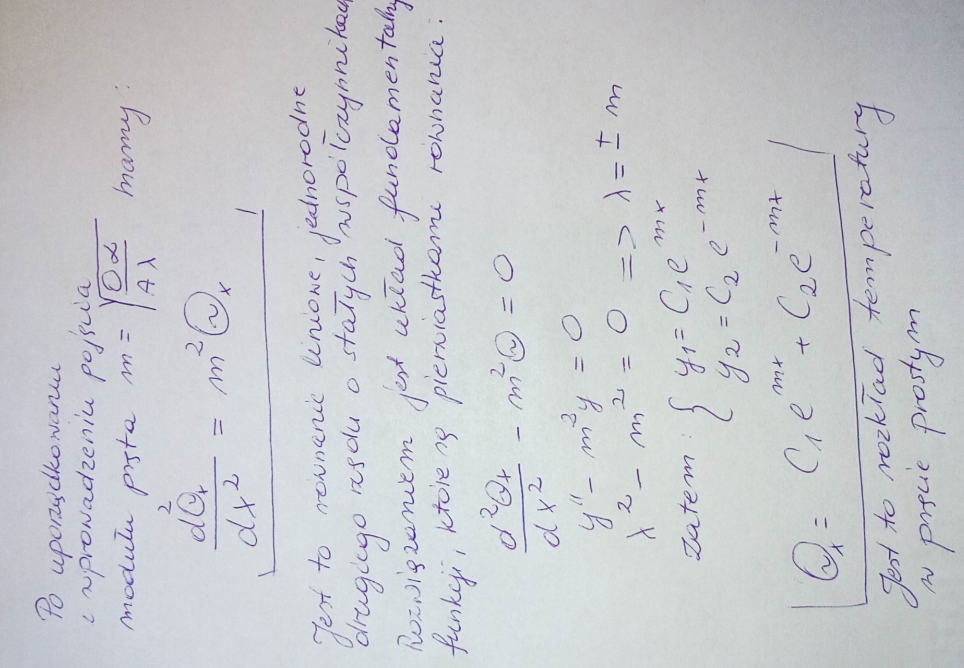 Po uporządkowaniu
i wprowadzeniu pojęcia
modułu pręta m = √(Oα / Aλ) mamy:
d²Θx / dx² = m²Θx
Jest to równanie liniowe, jednorodne
drugiego rzędu o stałych współczynnikach
Rozwiązaniem jest układ fundamentalny
funkcji, które są pierwiastkami równania:
d²Θx / dx² - m²Θ = 0
y'' - m²y = 0
λ² - m² = 0 => λ = ± m
zatem: { y1 = C1e^mx
y2 = C2e^-mx
Θx = C1e^mx + C2e^-mx
Jest to rozkład temperatury
w pręcie prostym